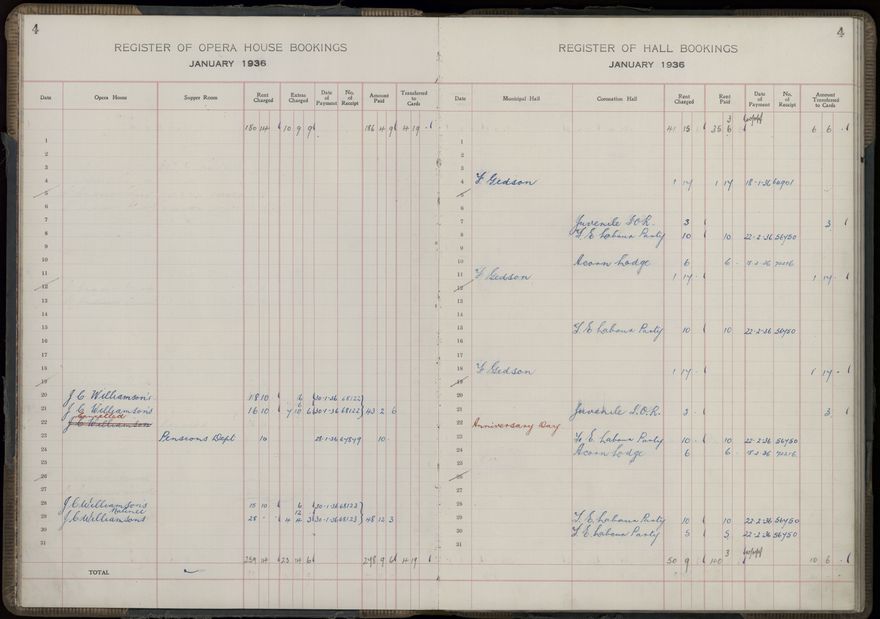 4
REGISTER OF OPERA HOUSE BOOKINGS
JANUARY 1936
Date Opera House Supper Room Rent Charged Extras Charged Date of Payment No. of Receipt Amount Paid Transferred to Cards
150 14 10 9 9 186 4 9 4 19
1
2
3
4
5
6
7
8
9
10
11
12
13
14
15
16
17
18
19
20 J C Williamson's 18 10 30-1-36 68122
21 J C Williamson's 16 10 4 10 6 30-1-36 68122 43 2 6
Cancelled
22 J C Williamson
23 Pensions Dept 10 10
24
25
26
27
28 J C Williamson's 15 10 6 30-1-36 68123
Matinee 12
29 J C Williamson's 28 - - 4 4 3 30-1-36 68123 48 12 3
30
31
259 14 23 14 6 278 9 6 4 19
TOTAL
4
REGISTER OF HALL BOOKINGS
JANUARY 1936
Date Municipal Hall Coronation Hall Rent Charged Rent Paid Date of Payment No. of Receipt Amount Transferred to Cards
41 15 - 35 6 6 6 -
1
2
3
4 F Gedson 1 17 1 17 18-1-36
5
6
7 Juvenile I.O.R. 3 - 3
8 F. E. Labour Party 10 10 22-2-36 56750
9
10 Acorn Lodge 6 6 -
11 F Gedson 1 17 - 1 17 -
12
13
14
15 F. E. Labour Party 10 10 22-2-36 56750
16
17
18 F Gedson 1 17 - 1 17 -
19
20
21 Juvenile I.O.R. 3 - 3
22 Anniversary Day
23 F. E. Labour Party 10 - 10 22-2-36 56750
24 Acorn Lodge 6 6 -
25
26
27
28
29 F. E. Labour Party 10 10 22-2-36 56750
30 F. E. Labour Party 5 5 22-2-36 56750
31
50 9 10 6 -